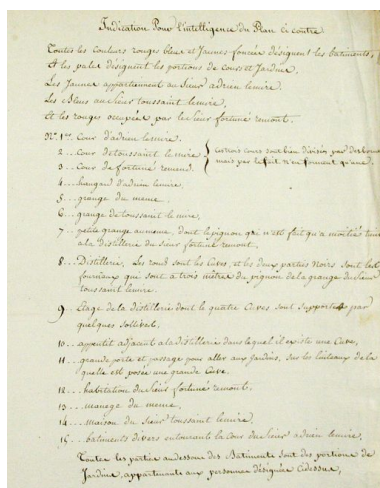 Indication Pour l'intelligence du Plan ci contre
Toutes les Couleurs rouges bleus et Jaunes foncée désignent les batiments,
Et les pales désignent les portions de Cours et Jardins,
Les Jaunes appartiennent au Sieur adrien lemire,
Les Bleus au Sieur toussaint lemire,
Et les rouges occupée par le Sieur fortuné remont.
Nos 1er Cour d'adrien lemire,
2... Cour de toussaint lemire
3... Cour de fortuné remont.
ces trois cours sont bien divisés par des bornes
mais par le fait n'en forment qu'une.
4... hangard d'adrien lemire,
5... grange du meme,
6... grange de toussaint lemire,
7... petite grange au meme, dont le pignon qui n'est fait qu'a moitié tient
a la distillerie du Sieur fortuné remont.
8... Distillerie, Les rond sont les Cuves, et les deux parties noirs sont les
fourneaux qui sont à trois mètre du pignon de la grange du Sieur
toussaint lemire.
9. Etage de la distillerie dont le quatre Cuves sont supportées par
quelques Sollives.
10... appentit adjacent a la distillerie dans lequel il existe une Cuve,
11... grande porte et passage pour aller aux Jardins, sur les linteaux de la
quelle est posée une grande Cuve.
12... habitation du Sieur fortuné remont.
13... manege du meme,
14... maison du Sieur toussaint lemire
15... batiments divers entourant la Cour du Sieur adrien lemire,
Toutes les partie au dessous des Batiments sont des portions de
Jardins, appartenants aux personnes désignée Cidessus,